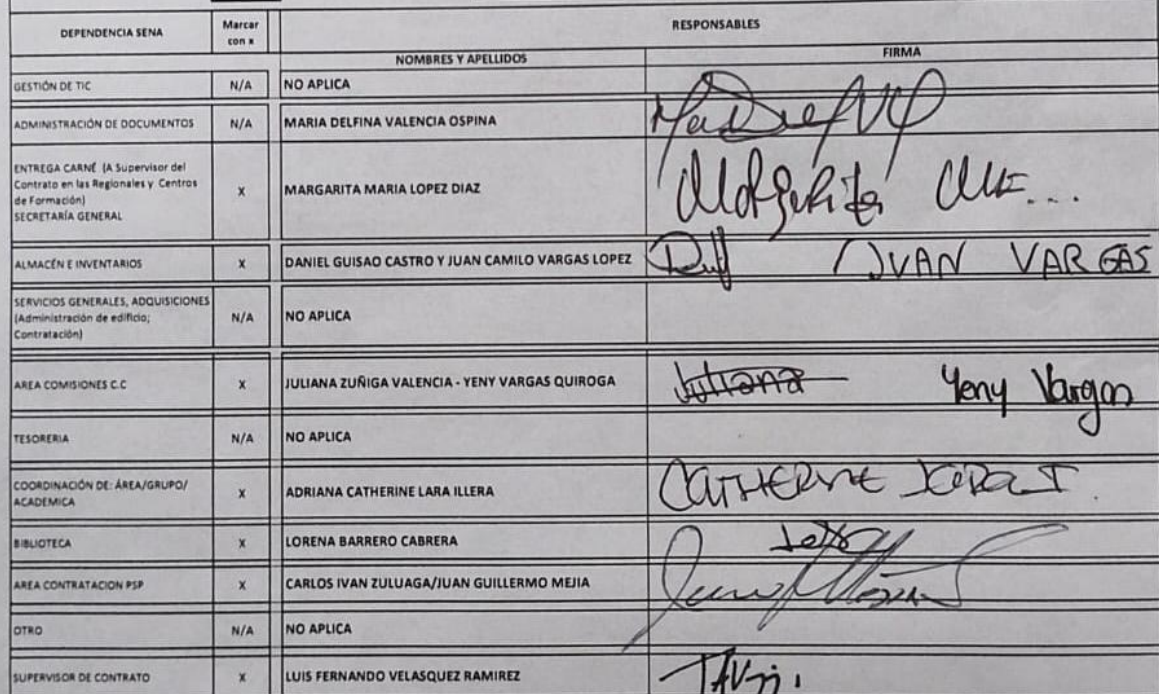 DEPENDENCIA SENA
Marcar
con x
RESPONSABLES
NOMBRES Y APELLIDOS
FIRMA
GESTIÓN DE TIC
N/A
NO APLICA
ADMINISTRACIÓN DE DOCUMENTOS
N/A
MARIA DELFINA VALENCIA OSPINA
ENTREGA CARNÉ (A Supervisor del
Contrato en las Regionales y Centros
de Formación)
SECRETARÍA GENERAL
X
MARGARITA MARIA LOPEZ DIAZ
Margarita
ALMACÉN E INVENTARIOS
X
DANIEL GUISAO CASTRO Y JUAN CAMILO VARGAS LOPEZ
JUAN VARGAS
SERVICIOS GENERALES, ADQUISICIONES
(Administración de edificio;
Contratación)
N/A
NO APLICA
AREA COMISIONES C.C
X
JULIANA ZUÑIGA VALENCIA - YENY VARGAS QUIROGA
Juliana Yeny Vargas
TESORERIA
N/A
NO APLICA
COORDINACIÓN DE: ÁREA/GRUPO/
ACADEMICA
X
ADRIANA CATHERINE LARA ILLERA
CATHERINE
BIBLIOTECA
X
LORENA BARRERO CABRERA
AREA CONTRATACION PSP
X
CARLOS IVAN ZULUAGA/JUAN GUILLERMO MEJIA
OTRO
N/A
NO APLICA
SUPERVISOR DE CONTRATO
X
LUIS FERNANDO VELASQUEZ RAMIREZ